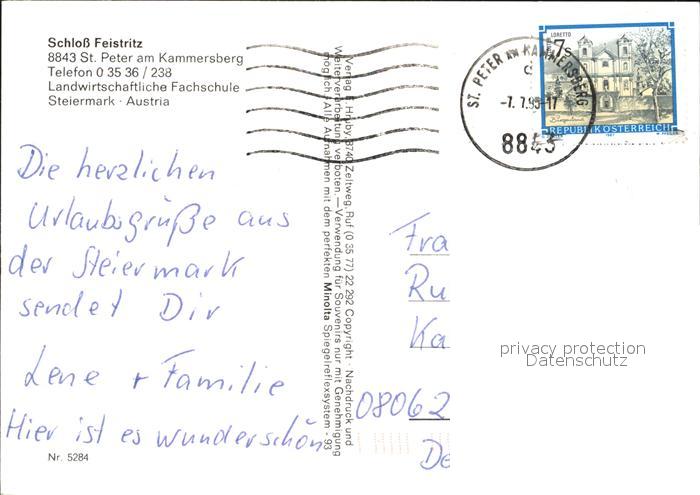 Schloß Feistritz
8843 St. Peter am Kammersberg
Telefon 0 35 36 / 238
Landwirtschaftliche Fachschule
Steiermark · Austria
LORETTO
7 S
Burgenland
1987
REPUBLIK ÖSTERREICH
ST. PETER AM KAMMERSBERG
-7. 7.95-17
8843
Die herzlichen
Urlaubsgrüße aus
der Steiermark
sendet Dir
Lene + Familie
Hier ist es wunderschön
Nr. 5284
Verlag E. Hruby, 8740 Zeltweg, Ruf (0 35 77) 22 292 Copyright · Nachdruck und
Weiterverarbeitung verboten. — Verwendung für Souvenirs nur mit Genehmigung
möglich! Alle Aufnahmen mit dem perfekten Minolta Spiegelreflexsystem - 93
Fra
Ru
Ka
08062
De
privacy protection
Datenschutz